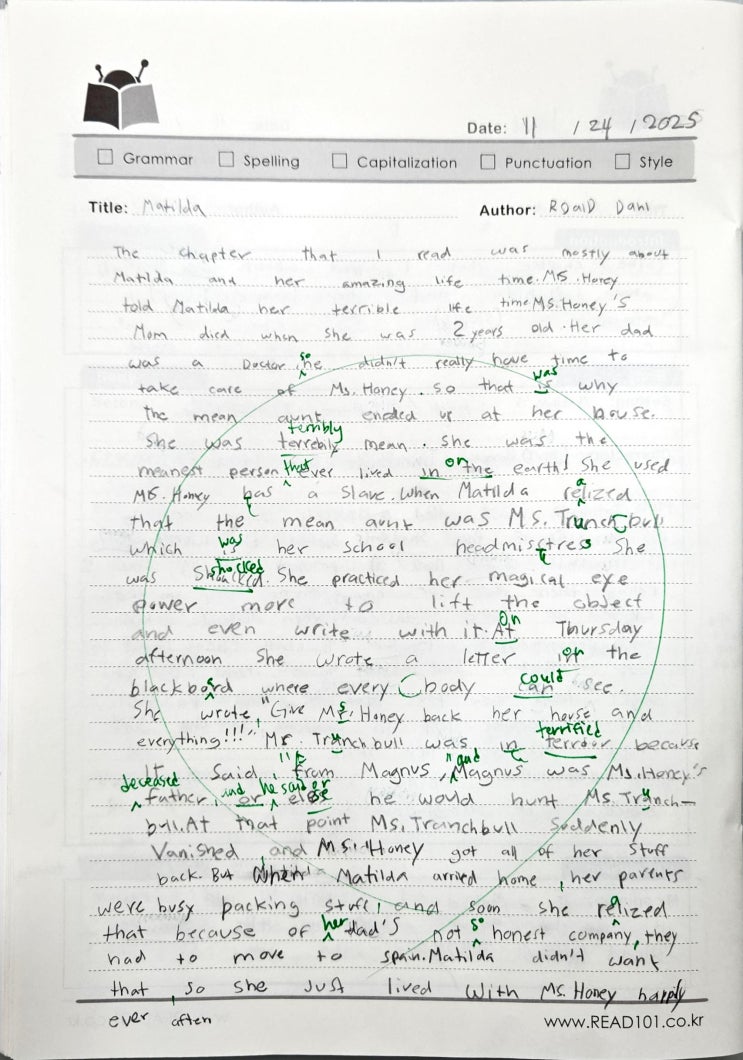 Date: 11 / 24 / 2025
Grammar Spelling Capitalization Punctuation Style
Title: Matilda Author: ROalD Dahl
The chapter that I read was mostly about
Matilda and her amazing life time. MS. Honey
told Matilda her terrible life time Ms. Honey's
Mom died when she was 2 years old. Her dad
so
was a Doctor he didn't really have time to
was
take care of Ms. Honey. so that is why
the mean aunt ended up at her house.
terribly
She was terrebly mean. she was the
that on
meanest person ever lived in the earth! She used
a
MS. Honey has a slave. When Matilda relized
that the mean aunt was MS. Trunchbull
was
which is her school headmisstress She
shocked
was She practiced her magical eye
power more to lift the object
On
and even write with it. At Thursday
on
afternoon She wrote a letter in the
could
blackboard where every body can see.
She wrote, "Give Ms. Honey back her house and
terrified
everything!!!" Ms Trunchbull was in terroor because
"I'm and
It Said, from Magnus, "Magnus was Ms. Honey's
deceased and he said or
father, or else he would hunt Ms. Trunch-
bull. At that point Ms. Tranchbull Suddenly
Vanished, and Ms. Honey got all of her stuff
back. But When Matilda arrived home, her parents
a
were busy packing stuff, and soon she relized
her so
that because of dad's not honest company, they
had to move to spain. Matilda didn't want
that, so she Just lived With Ms. Honey happily
ever after
www.READ101.co.kr